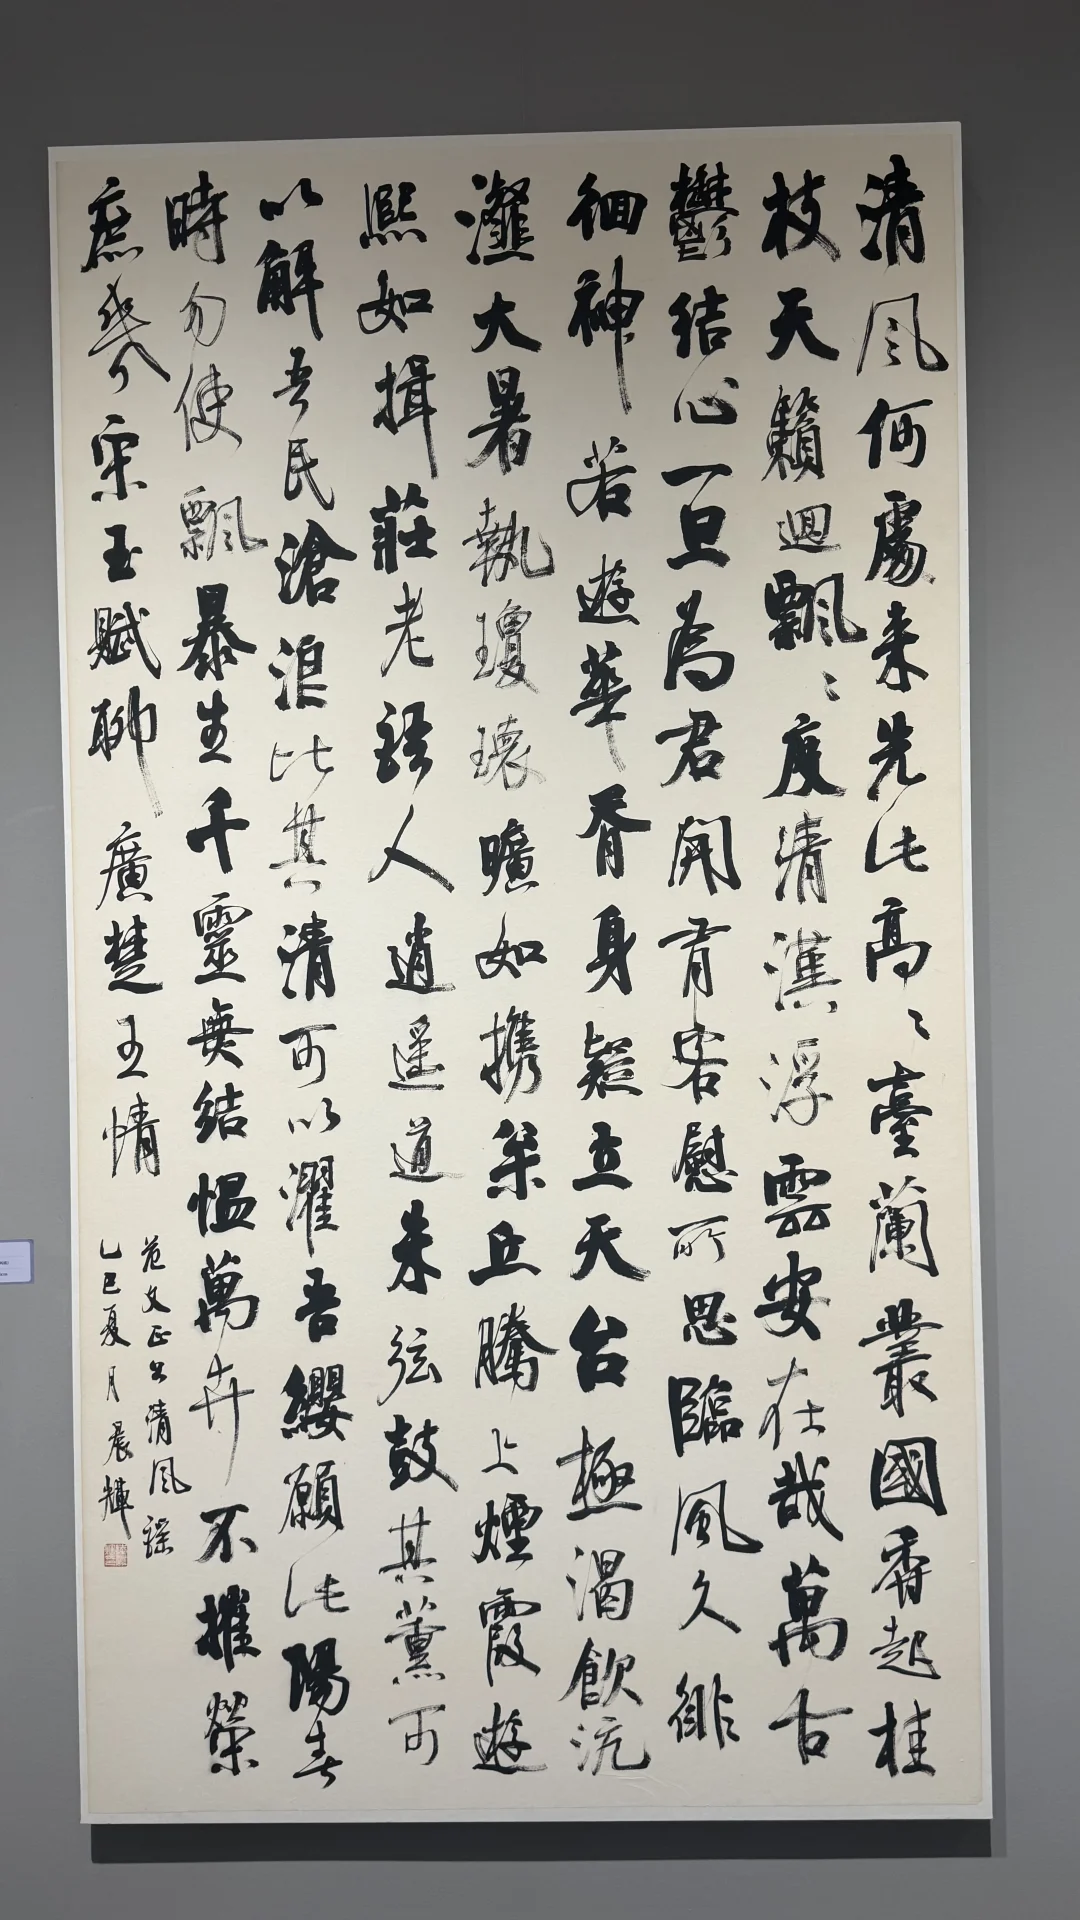 清风何處来先此高〻臺蘭叢國香起桂
枝天籟迴飄〻度清漢浮雲安在哉萬古
鬱結心一旦為君開有客慰所思臨風久徘
徊神若遊華胥身疑立天台極渴飲沆
瀣大暑執瓊瓌曠如携枩丘騰上煙霞遊
熙如揖莊老語人逍遥道朱弦鼓其薰可
以解吾民滄浪比其清可以濯吾纓願此陽春
時勿使飄暴生千靈無結愠萬卉不摧榮
庶幾宋玉賦聊廣楚王情
范文正公清风謡
乙巳夏月晨輝